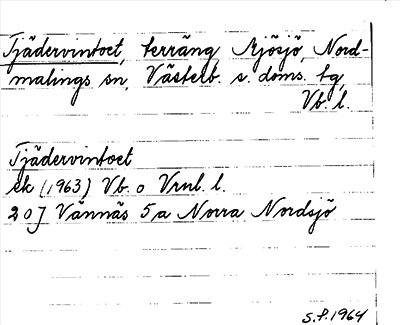 Tjädervintoet, terräng, Mjösjö, Nord-
malings sn, Västerb. s. doms. tg,
Vb. l.
Tjädervintoet
ek (1963) Vb. o Vrnl. l.
20J Vännäs 5,a Norra Nordsjö
S.P. 1964